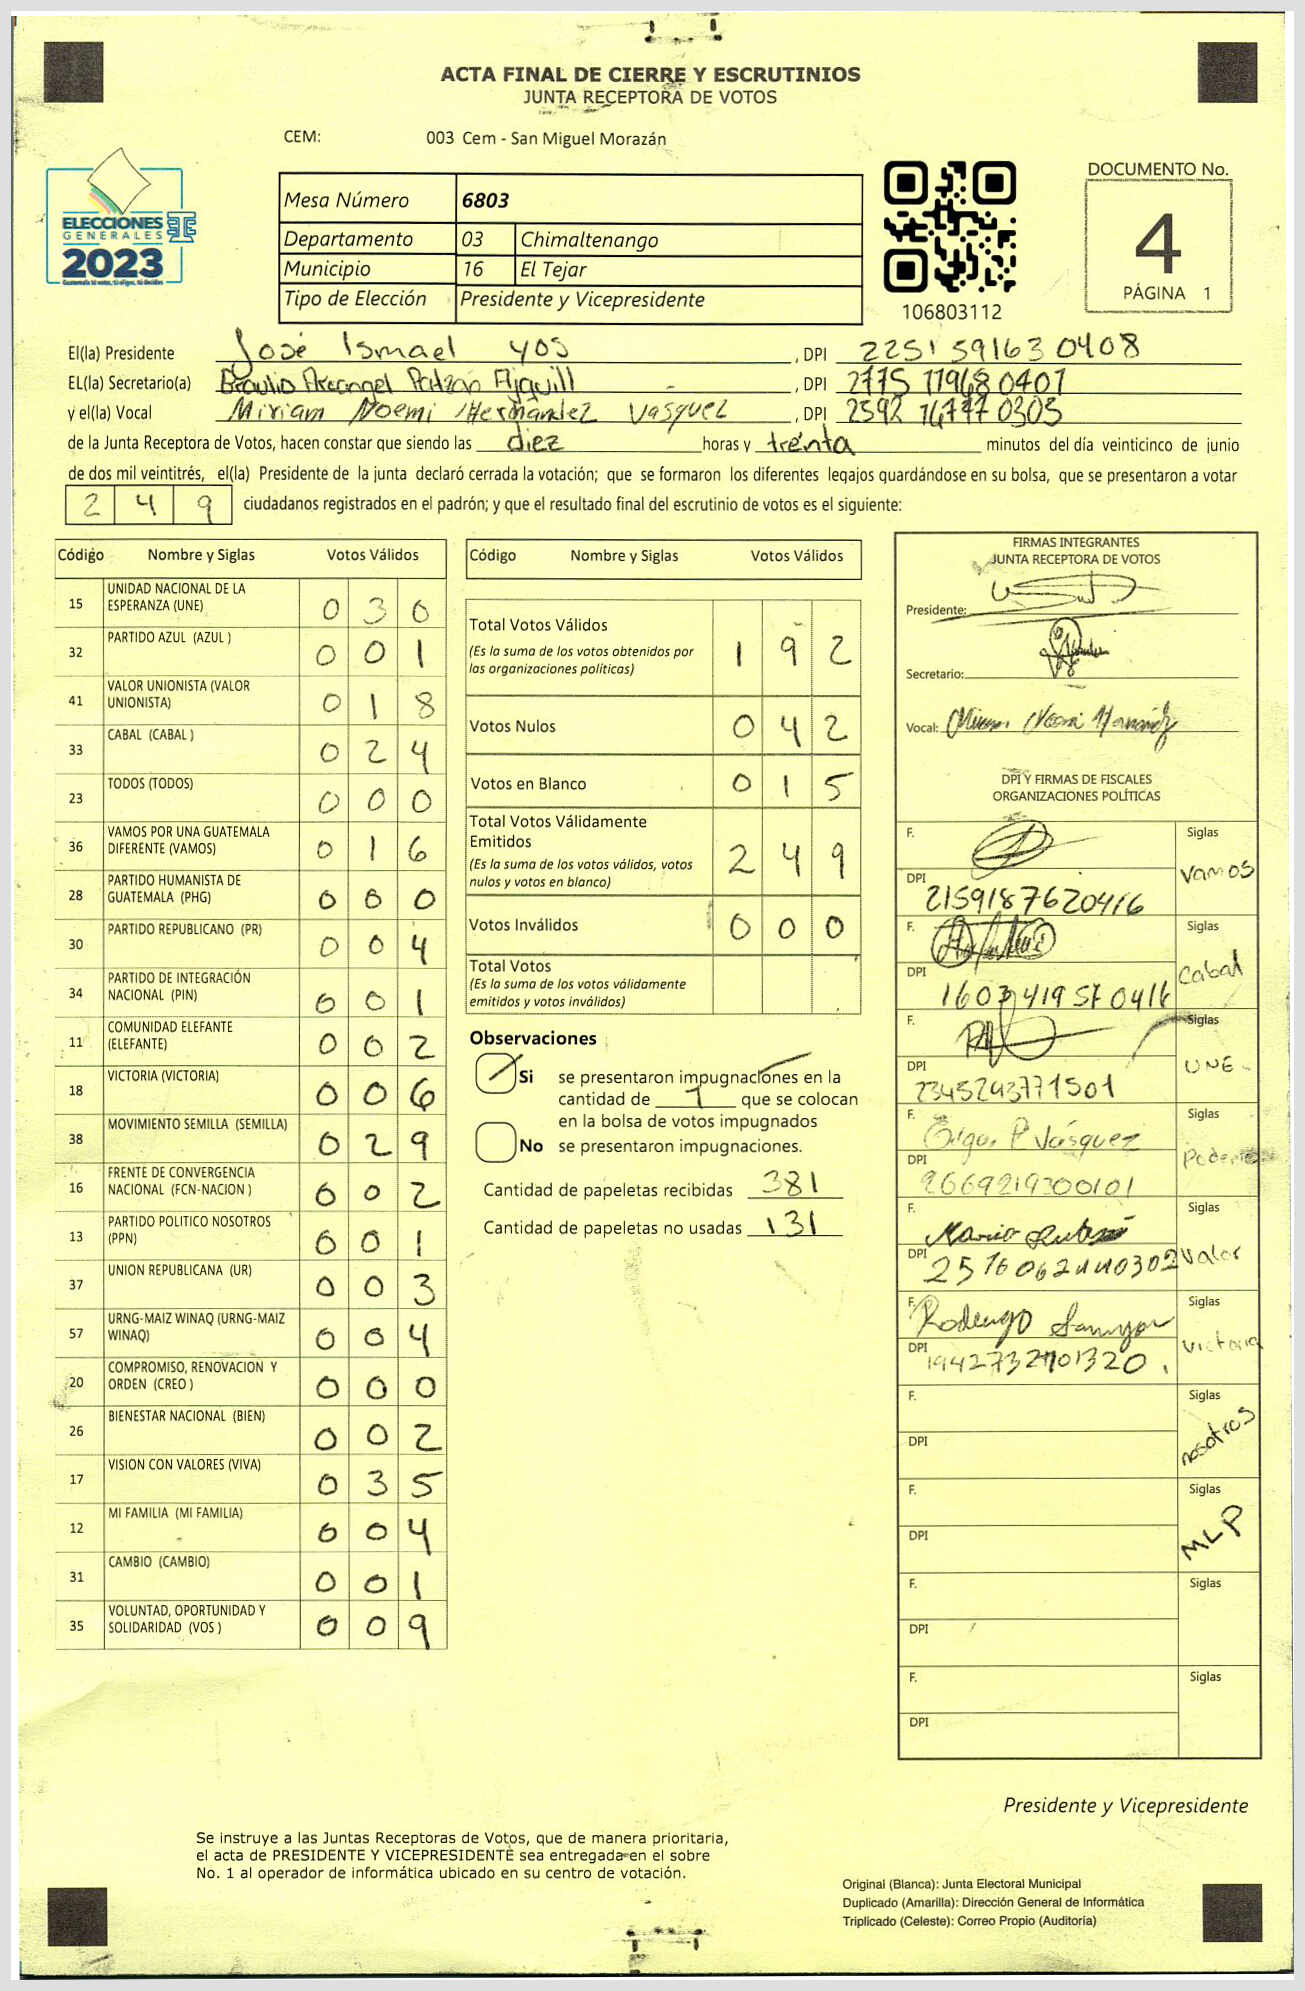 ACTA FINAL DE CIERRE Y ESCRUTINIOS
JUNTA RECEPTORA DE VOTOS
CEM: 003 Cem - San Miguel Morazán
ELECCIONES
GENERALES
2023
Mesa Número 6803
Departamento 03 Chimaltenango
Municipio 16 El Tejar
Tipo de Elección Presidente y Vicepresidente
106803112
DOCUMENTO No.
4
PÁGINA 1
El(la) Presidente José Ismael yos , DPI 2251 59163 0408
EL(la) Secretario(a) Braulio Arcangel Patzán Ajquill , DPI 2775 11968 0401
y el(la) Vocal Miriam Noemi Hernández Vasquez , DPI 2592 16777 0303
de la Junta Receptora de Votos, hacen constar que siendo las diez horas y trenta minutos del día veinticinco de junio
de dos mil veintitrés, el(la) Presidente de la junta declaró cerrada la votación; que se formaron los diferentes legajos quardándose en su bolsa, que se presentaron a votar
2 4 9 ciudadanos registrados en el padrón; y que el resultado final del escrutinio de votos es el siguiente:
Código Nombre y Siglas Votos Válidos
15 UNIDAD NACIONAL DE LA ESPERANZA (UNE) 0 3 0
32 PARTIDO AZUL (AZUL ) 0 0 1
41 VALOR UNIONISTA (VALOR UNIONISTA) 0 1 8
33 CABAL (CABAL ) 0 2 4
23 TODOS (TODOS) 0 0 0
36 VAMOS POR UNA GUATEMALA DIFERENTE (VAMOS) 0 1 6
28 PARTIDO HUMANISTA DE GUATEMALA (PHG) 0 0 0
30 PARTIDO REPUBLICANO (PR) 0 0 4
34 PARTIDO DE INTEGRACIÓN NACIONAL (PIN) 0 0 1
11 COMUNIDAD ELEFANTE (ELEFANTE) 0 0 2
18 VICTORIA (VICTORIA) 0 0 6
38 MOVIMIENTO SEMILLA (SEMILLA) 0 2 9
16 FRENTE DE CONVERGENCIA NACIONAL (FCN-NACION ) 0 0 2
13 PARTIDO POLITICO NOSOTROS (PPN) 0 0 1
37 UNION REPUBLICANA (UR) 0 0 3
57 URNG-MAIZ WINAQ (URNG-MAIZ WINAQ) 0 0 4
20 COMPROMISO, RENOVACION Y ORDEN (CREO ) 0 0 0
26 BIENESTAR NACIONAL (BIEN) 0 0 2
17 VISION CON VALORES (VIVA) 0 3 5
12 MI FAMILIA (MI FAMILIA) 0 0 4
31 CAMBIO (CAMBIO) 0 0 1
35 VOLUNTAD, OPORTUNIDAD Y SOLIDARIDAD (VOS ) 0 0 9
Código Nombre y Siglas Votos Válidos
Total Votos Válidos 1 9 2
(Es la suma de los votos obtenidos por
las organizaciones políticas)
Votos Nulos 0 4 2
Votos en Blanco 0 1 5
Total Votos Válidamente
Emitidos 2 4 9
(Es la suma de los votos válidos, votos
nulos y votos en blanco)
Votos Inválidos 0 0 0
Total Votos
(Es la suma de los votos válidamente
emitidos y votos inválidos)
Observaciones
Si se presentaron impugnaciones en la
cantidad de 1 que se colocan
en la bolsa de votos impugnados
No se presentaron impugnaciones.
Cantidad de papeletas recibidas 381
Cantidad de papeletas no usadas 131
FIRMAS INTEGRANTES
JUNTA RECEPTORA DE VOTOS
Presidente:
Secretario:
Vocal: Miriam Noemi Hernández
DPI Y FIRMAS DE FISCALES
ORGANIZACIONES POLÍTICAS
F. Siglas
DPI 2159187620416 Vamos
F. Siglas
DPI Cabal
F. Siglas
DPI 2345243771501 UNE
F. Edgar P Vásquez Siglas
DPI 2669219300101
F. Mario Siglas
DPI Valor
F. Rodrigo Siglas
DPI Victoria
F. Siglas
DPI nosotros
F. Siglas
DPI MLP
F. Siglas
DPI
F. Siglas
DPI
Presidente y Vicepresidente
Se instruye a las Juntas Receptoras de Votos, que de manera prioritaria,
el acta de PRESIDENTE Y VICEPRESIDENTE sea entregada en el sobre
No. 1 al operador de informática ubicado en su centro de votación.
Original (Blanca): Junta Electoral Municipal
Duplicado (Amarilla): Dirección General de Informática
Triplicado (Celeste): Correo Propio (Auditoría)